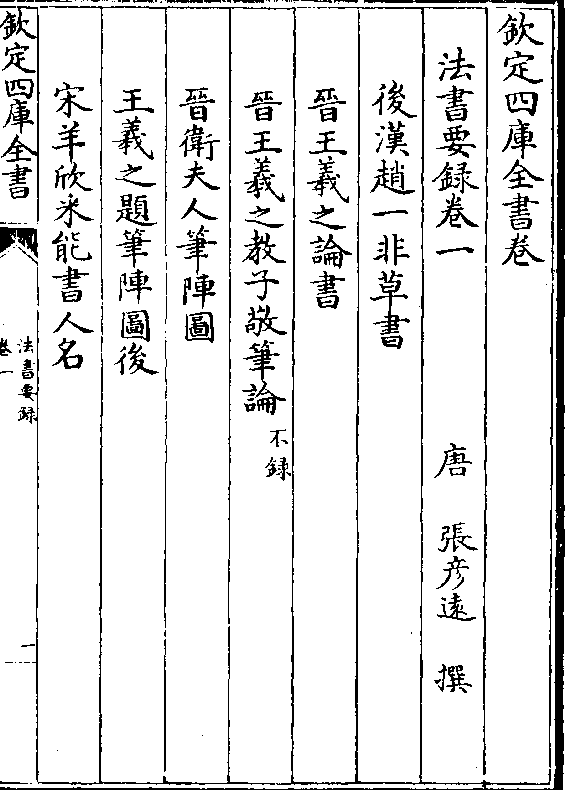 欽定四庫全書卷
法書要録卷一　唐　張彦遠　撰
後漢趙一非草書
晉王羲之論書
晉王羲之教子敬筆論不録
晉衛夫人筆陣圖
王羲之題筆陣圖後
宋羊欣采能書人名
欽定四庫全書
法書要録
卷一
一